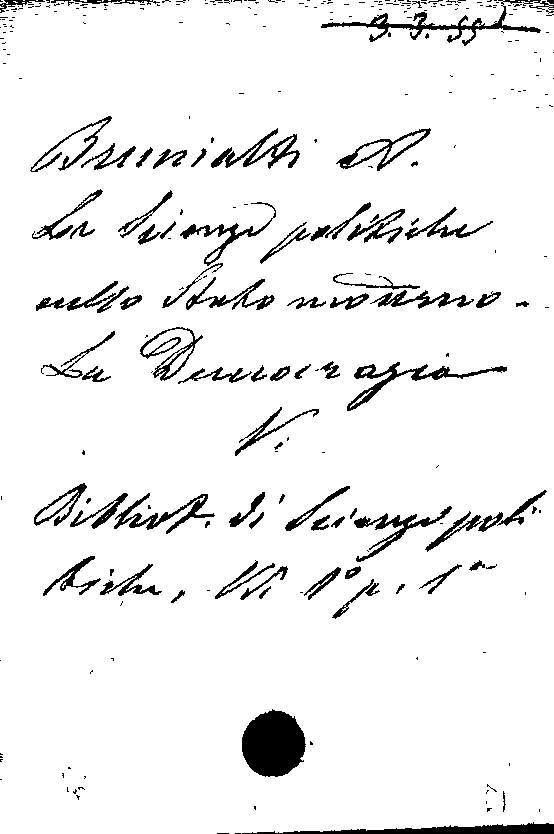 3.3.55
Brunialti A.
Le Scienze politiche
nello Stato moderno.
La Democrazia
V.
Bibliot. di Scienze poli
tiche, Vol 1º p. 1ª